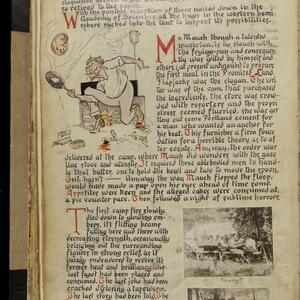 so retired to the ropes.
With the possible exception of those nailed down in the
Academy of Sciences all the bugs in the western hemi-
sphere rushed into the tent to inspect its possibilities.
Mr. Much though a talented
musician, is no slouch with
the frying-pan and consequen-
tly was selected by himself and
others (all present and voting) to prepare
the first meal in the Promised Land.
Flapjacks was the slogan. The
of the corn. That purchased
the ingredients, the store was crow-
ded with reporters and the propri
etress seemed flurried, she was get
ting out some Portland cement for
a man who wanted an anchor for
his boat. This furnishes a firm foun
dation for a horrible theory as to af
ter events. Any way, the order was
delivered at the camp, where Much did wonders with the gaso
line stove and utensils. It required three able bodied men to handle
that batter one to hold the bowl and two to move the spoon.
Still harm? — Any way the way Much flipped the flops
would have made a pap open his eyes ahead of time some.
Appetites were keen and the alleged cakes were consumed at
a pie counter pace. Then followed a night of sublime horrors.
The first camp fire slowly
died down to glowing em
bers, its flitting beams
falling here and there with
decreasing strength, occasionally
bringing out the surrounding
figures in strong relief, as it
vainly endeavored to revive its
former heat and brilliancy. The
last fagot had been placed and
consumed. The last joke had been
cracked disclosing a tapeworm.
The last story had been told. The